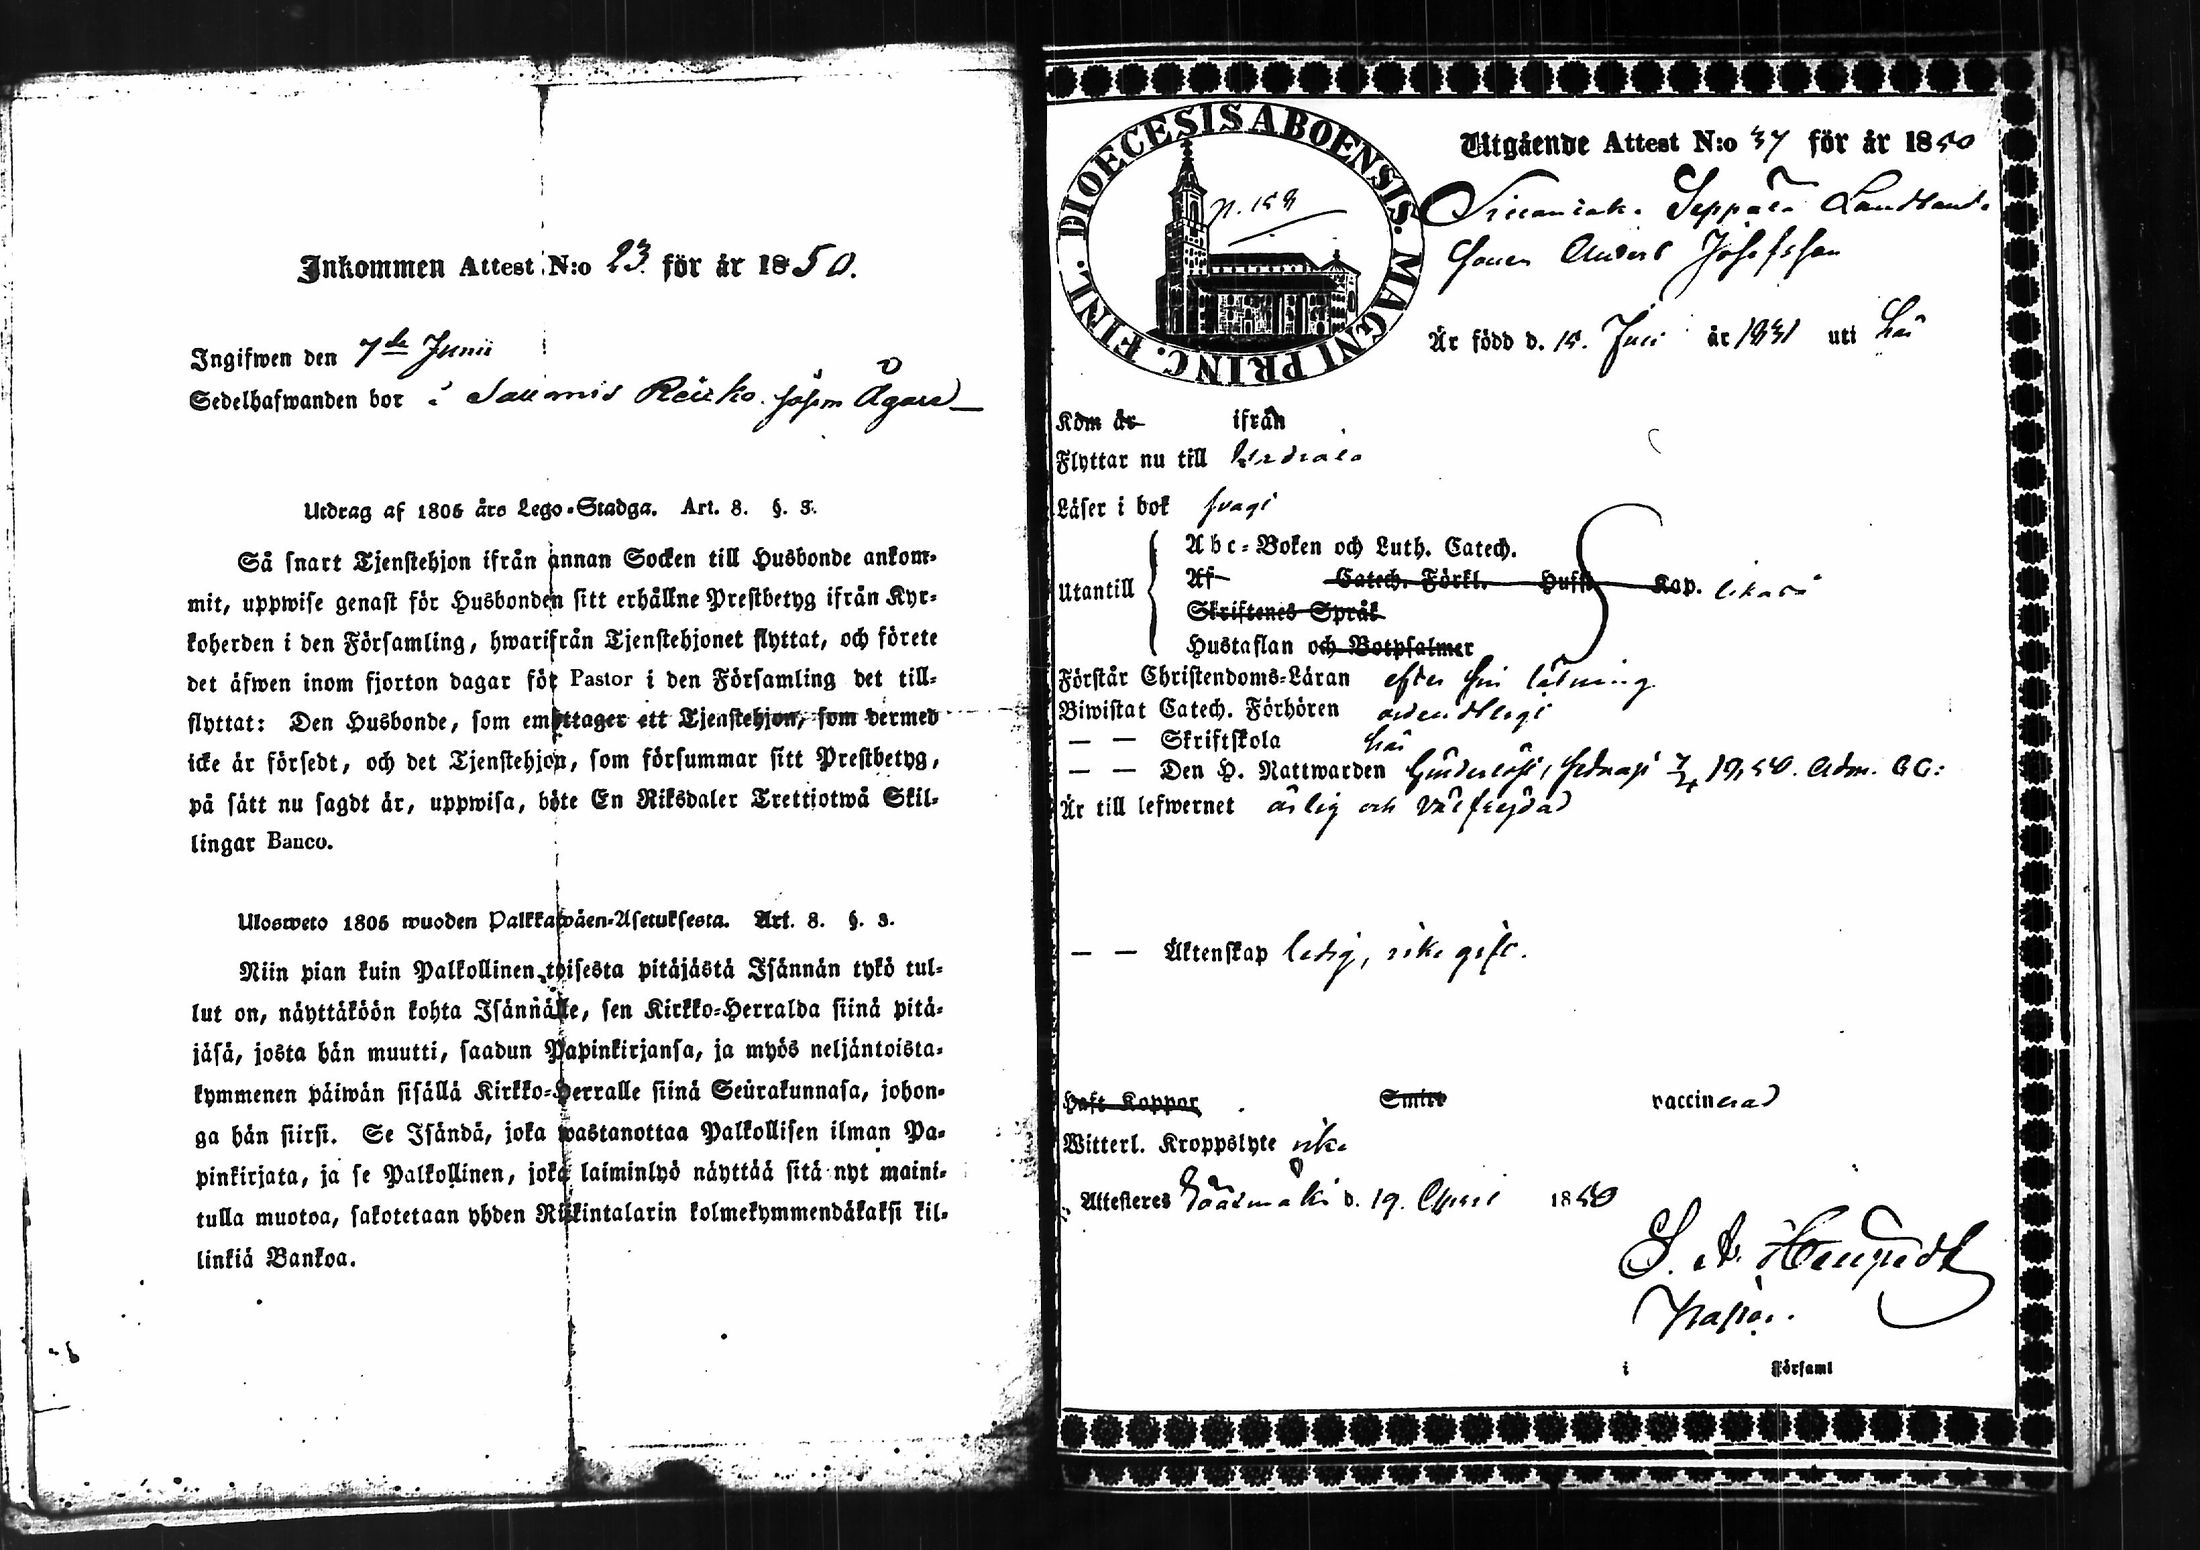 Inkommen Attest N:o 23 för år 1850.
Ingifwen den 7de Junii
Sedelhafwanden bor i
Utdrag af 1805 års Lego-Stadga. Art. 8. §. 3.
Så snart Tjenstehjon ifrån annan Socken till Husbonde ankom-
mit, uppwise genast för Husbonden sitt erhållne Prestbetyg ifrån Kyr-
koherden i den Församling, hwarifrån Tjenstehjonet flyttat, och förete
det äfwen inom fjorton dagar för Pastor i den Församling det till-
flyttat: Den Husbonde, som emottager ett Tjenstehjon, som dermed
icke är försedt, och det Tjenstehjon, som försummar sitt Prestbetyg,
på sätt nu sagdt är, uppwisa, böte En Riksdaler Trettiotwå Skil-
lingar Banco.
Ulosweto 1805 wuoden Palkkawäen-Asetuksesta. Art. 8. §. 3.
Niin pian kuin Palkollinen toisesta pitäjästä Isännän tykö tul-
lut on, näyttäköön kohta Isännälle, sen Kirkko-Herralda siinä pitä-
jäsä, josta hän muutti, saadun Papinkirjansa, ja myös neljäntoista-
kymmenen päiwän sisällä Kirkko-Herralle siinä Seurakunnasa, johon-
ga hän siirsi. Se Isändä, joka wastanottaa Palkollisen ilman Pa-
pinkirjata, ja se Palkollinen, joka laiminlyö näyttää sitä nyt maini-
tulla muotoa, sakotetaan yhden Riikintalarin kolmekymmendäkaksi kil-
linkiä Bankoa.
DIOECESIS ABOENSIS. MAGNI PRINC. FINL.
Utgående Attest N:o 37 för år 1850
Seppälä
Anders Josefsson
Är född d. 15. Juli år 1831 uti här
Kom år ifrån
Flyttar nu till Urdiala
Läser i bok svagt
Utantill
Abc-Boken och Luth. Catech.
Af Catech. Förkl. Husst Kap. likaså
Skriftenes Språk
Hustaflan och Botpsalmer
Förstår Christendoms-Läran efter sin läsning
Biwistat Catech. Förhören ordentligt
— — Skriftskola här
— — Den H. Nattwarden 1850. Adm. CC:
Är till lefwernet ärlig och välfrejdad
— — Äktenskap ledig, icke gift.
Haft Koppor Smitt vaccinerad
Witterl. Kroppslyte icke
Attesteres Sääsmäki d. 19. April 1850
i Församl